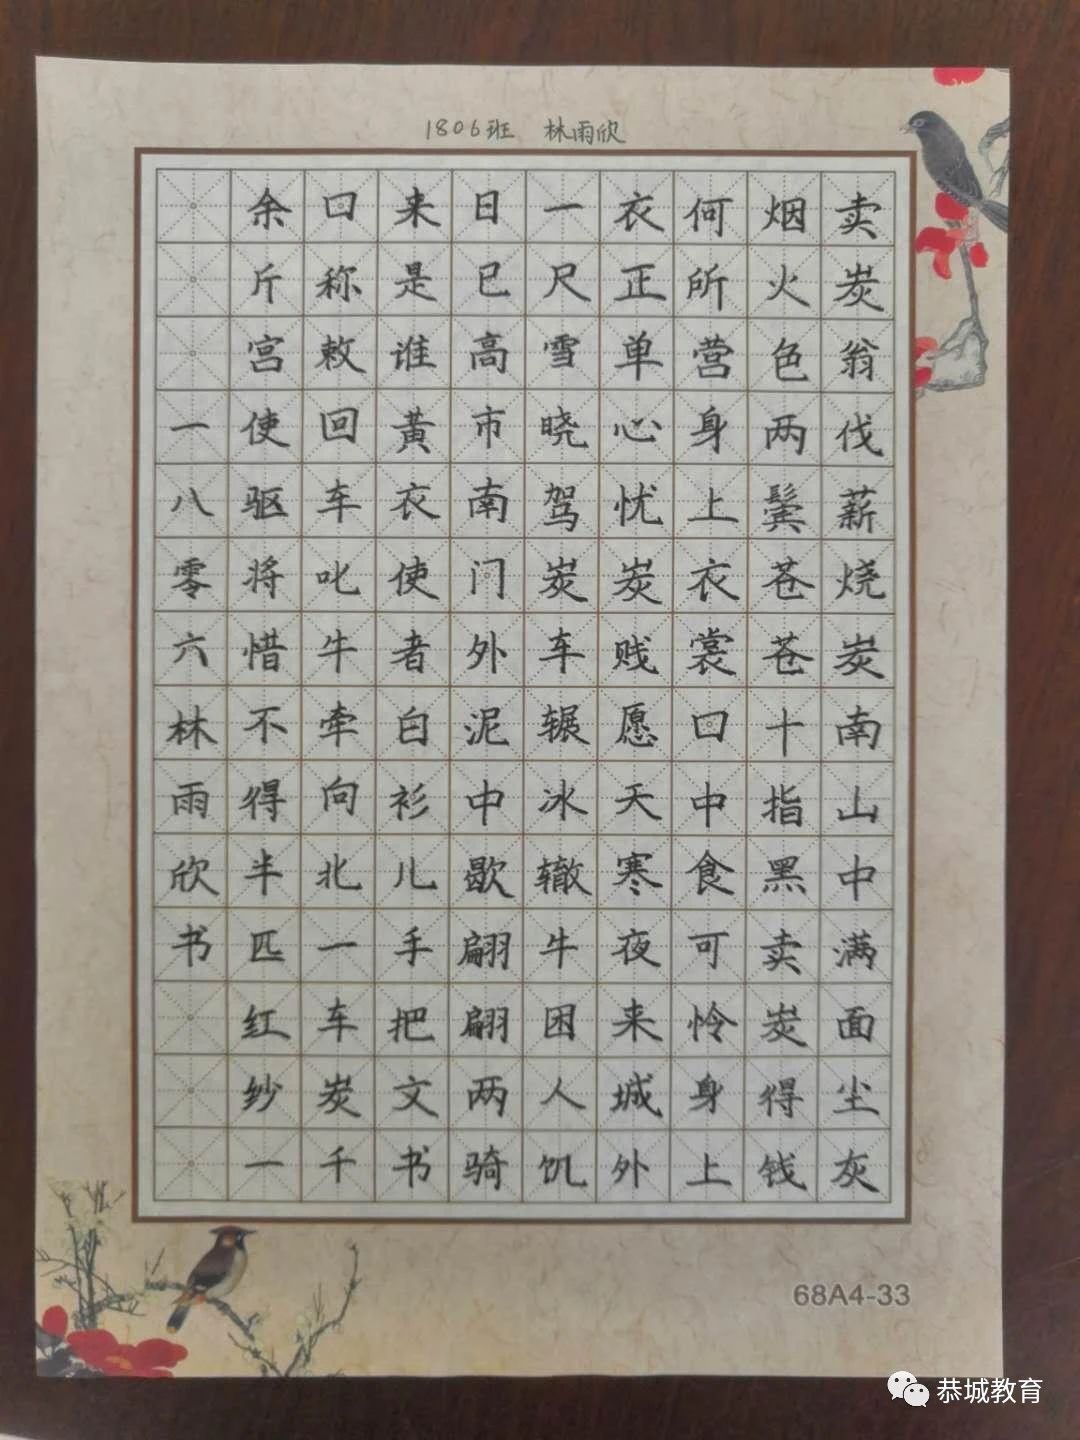 1806班 林雨欣
卖炭翁伐薪烧炭南山中满面尘灰
烟火色两鬓苍苍十指黑卖炭得钱
何所营身上衣裳口中食可怜身上
衣正单心忧炭贱愿天寒夜来城外
一尺雪晓驾炭车辗冰辙牛困人饥
日已高市南门外泥中歇翩翩两骑
来是谁黄衣使者白衫儿手把文书
口称敕回车叱牛牵向北一车炭千
余斤宫使驱将惜不得半匹红纱一
一八零六林雨欣书
68A4-33
恭城教育